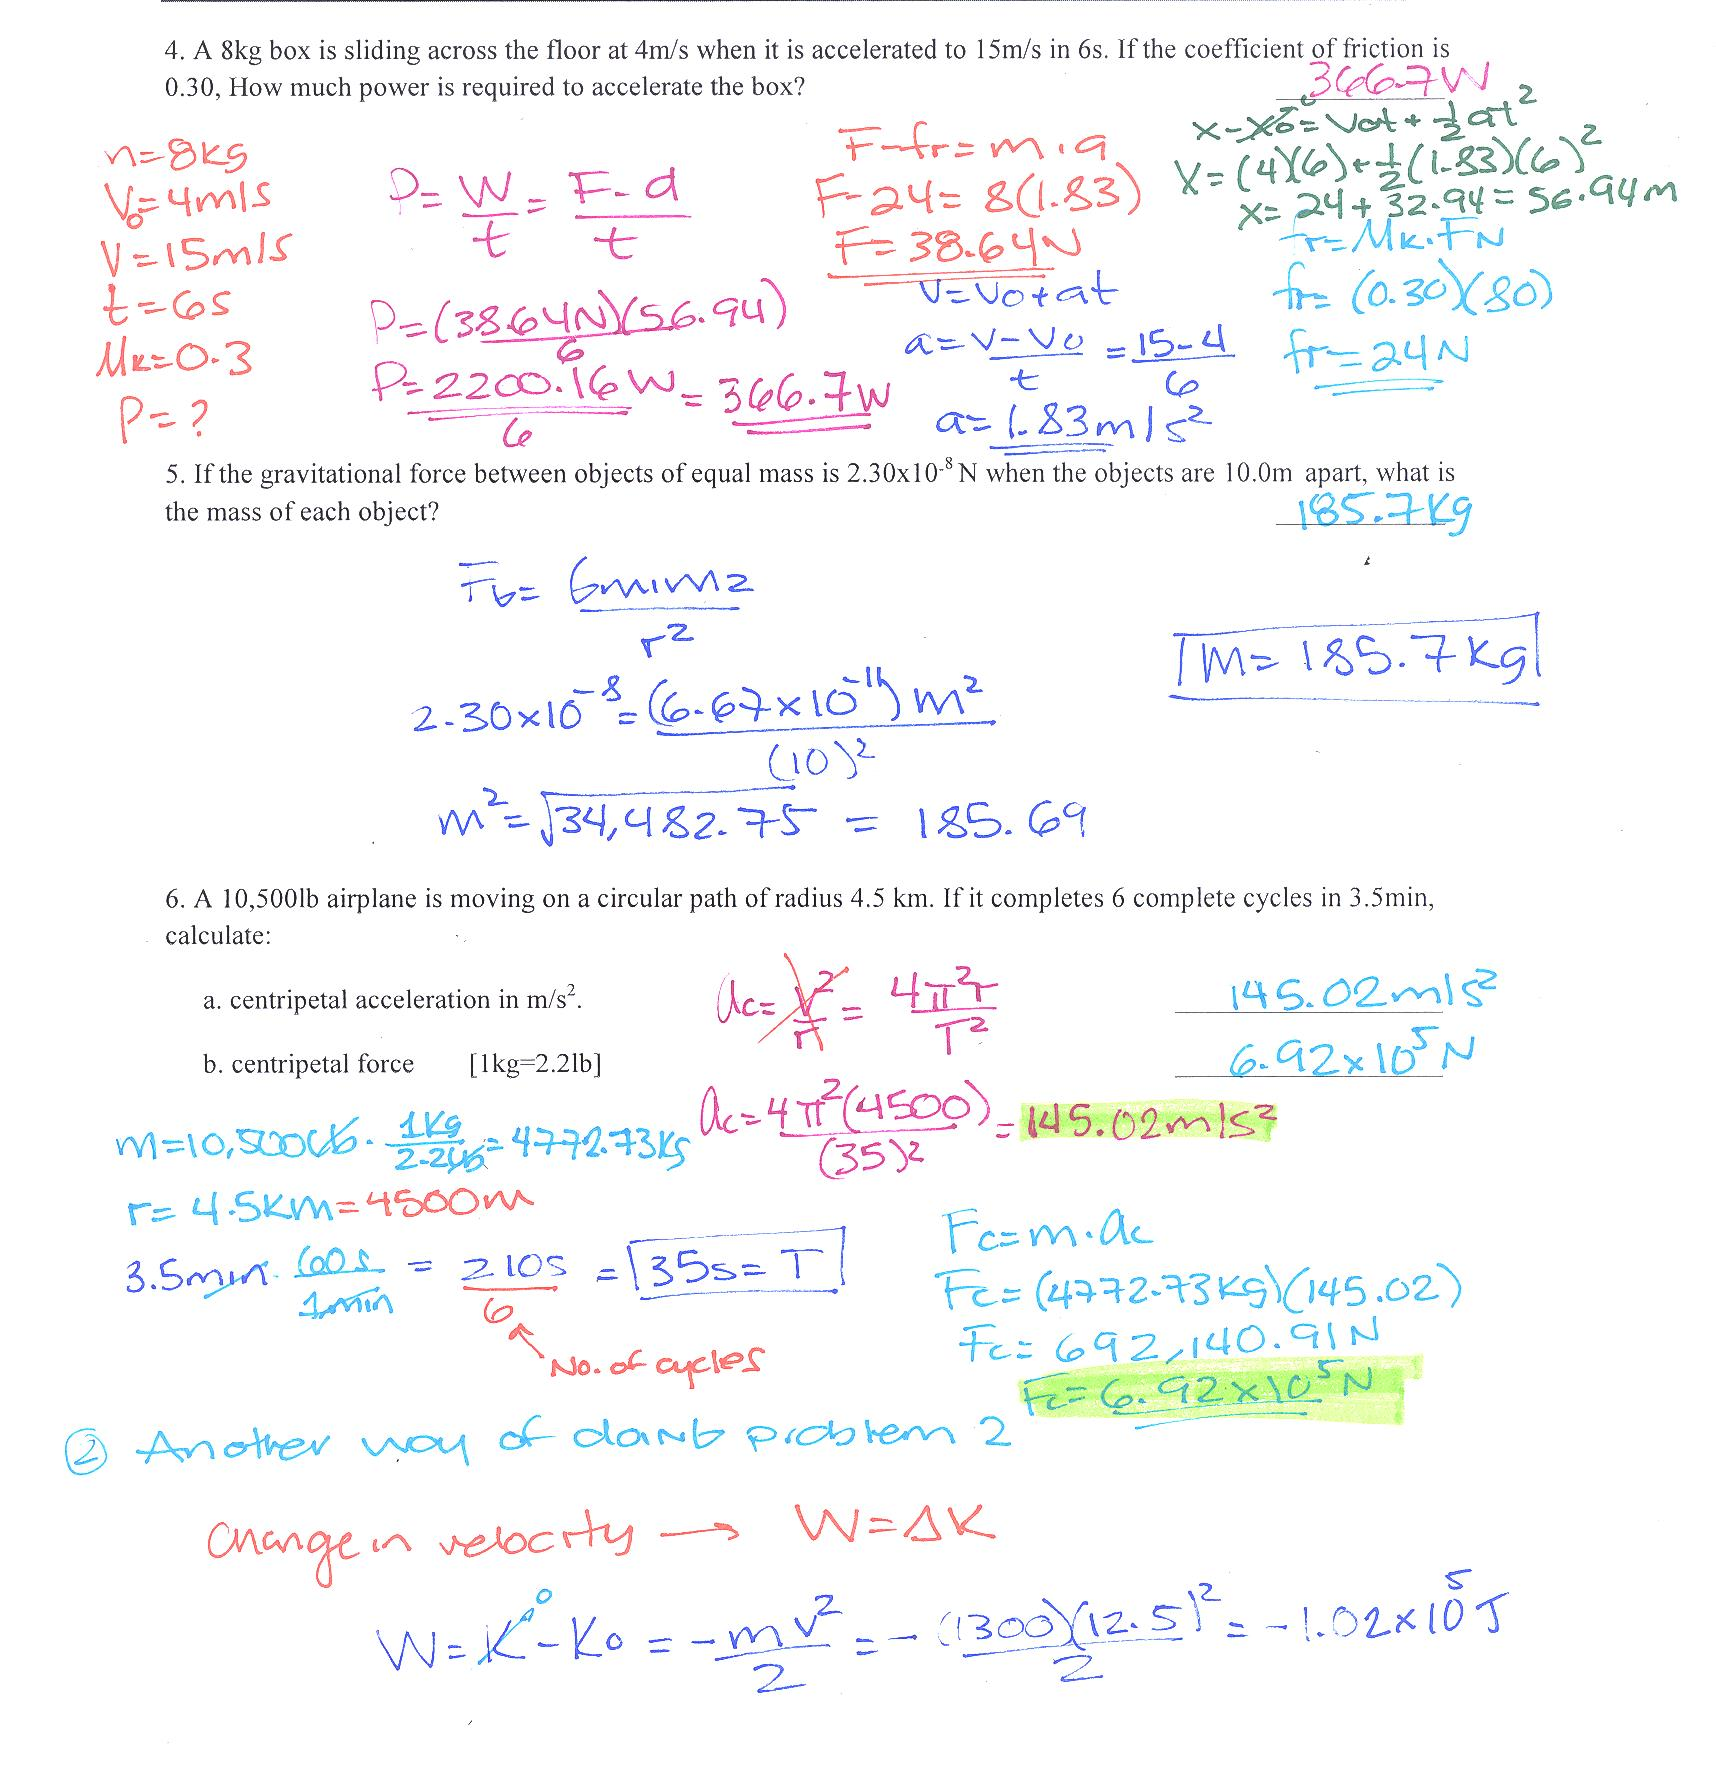 4. A 8kg box is sliding across the floor at 4m/s when it is accelerated to 15m/s in 6s. If the coefficient of friction is
0.30, How much power is required to accelerate the box?
366.7W
n=8kg
V₀=4m/s
V=15m/s
t=6s
Mk=0.3
P=?
P= W/t = F-d/t
P=(38.64N)(56.94)/6
P=2200.16W/6 = 366.7W
F-fr=m.a
F-24=8(1.83)
F=38.64N
V=Vo+at
a=V-Vo/t = 15-4/6
a=1.83m/s²
x-xo=Vot+½at²
X=(4)(6)+½(1.83)(6)²
X=24+32.94=56.94m
fr=Mk.FN
fr=(0.30)(80)
fr=24N
5. If the gravitational force between objects of equal mass is 2.30x10⁻⁸ N when the objects are 10.0m apart, what is
the mass of each object?
185.7kg
FG= Gm1m2/r²
2.30x10⁻⁸=(6.67x10⁻¹¹)m²/(10)²
m²=√34,482.75 = 185.69
m=185.7kg
6. A 10,500lb airplane is moving on a circular path of radius 4.5 km. If it completes 6 complete cycles in 3.5min,
calculate:
a. centripetal acceleration in m/s².
145.02m/s²
b. centripetal force [1kg=2.2lb]
6.92x10⁵N
ac= V²/r = 4π²r/T²
ac=4π²(4500)/(35)² = 145.02m/s²
m=10,500lb. 1kg/2.2lb = 4772.73kg
r=4.5km=4500m
3.5min. 60s/1min = 210s/6 = 35s=T
No. of cycles
Fc=m.ac
Fc=(4772.73kg)(145.02)
Fc=692,140.91N
Fc=6.92x10⁵N
② Another way of doing problem 2
Change in velocity → W=ΔK
W=K⁰-Ko = -mV²/2 = -(1300)(12.5)²/2 = -1.02x10⁵J